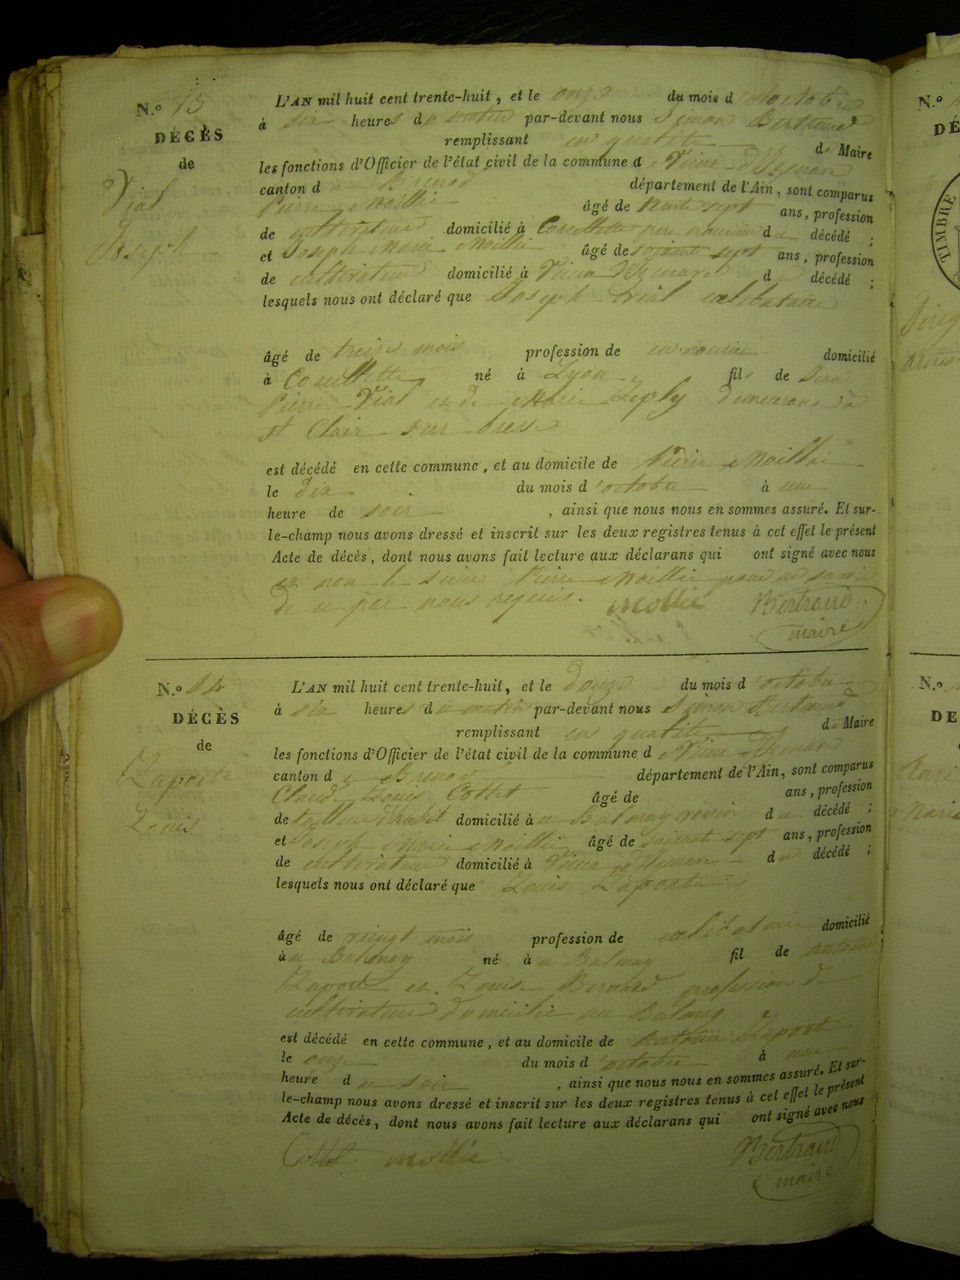 N.o 13
DÉCÈS
de
Vial
Joseph
L'AN mil huit cent trente-huit, et le onze du mois d'octobre
à six heures du matin par-devant nous Simon Bertrand
remplissant en qualité de Maire
les fonctions d'Officier de l'état civil de la commune de Vieu d'Izenave
canton de Brenod département de l'Ain, sont comparus
Pierre Moillie âgé de trente sept ans, profession
de cultivateur domicilié à Couillette décédé ;
et Joseph Marie Moillie âgé de soixante sept ans, profession
de cultivateur domicilié à Vieu d'Izenave d décédé ;
lesquels nous ont déclaré que Joseph Vial célibataire
âgé de treize mois profession de en nourice domicilié
à Couillette né à Lyon fils de Jean
Pierre Vial et de Marie demeurant à
St Clair sur
est décédé en cette commune, et au domicile de Pierre Moillie
le dix du mois d'octobre à une
heure de soir, ainsi que nous nous en sommes assuré. Et sur-
le-champ nous avons dressé et inscrit sur les deux registres tenus à cet effet le présent
Acte de décès, dont nous avons fait lecture aux déclarans qui ont signé avec nous
et non le Pierre Moillie pour ne savoir
de ce par nous requis. Mollie Bertrand
maire
N.o 14
DÉCÈS
de
Laporte
Louis
L'AN mil huit cent trente-huit, et le douze du mois d'octobre
à six heures du matin par-devant nous Simon Bertrand
remplissant en qualité de Maire
les fonctions d'Officier de l'état civil de la commune de Vieu d'Izenave
canton de Brenod département de l'Ain, sont comparus
Claude Louis Cottet âgé de ans, profession
de tailleur d'habit domicilié à Balmay voisin du décédé ;
et Joseph Marie Moillie âgé de soixante sept ans, profession
de cultivateur domicilié à Vieu d'Izenave d décédé ;
lesquels nous ont déclaré que Louis Laporte
âgé de vingt mois profession de célibataire domicilié
à Balmay né à Balmay fil de antoine
Laporte et Louise Bernard profession de
cultivateur domicilié au Balmay
est décédé en cette commune, et au domicile de antoine Laporte
le onze du mois d'octobre à une
heure du soir, ainsi que nous nous en sommes assuré. Et sur-
le-champ nous avons dressé et inscrit sur les deux registres tenus à cet effet le présent
Acte de décès, dont nous avons fait lecture aux déclarans qui ont signé avec nous
Cottet Mollie Bertrand
maire
N.o
DÉ
TIMBRE
N.o
DÉ